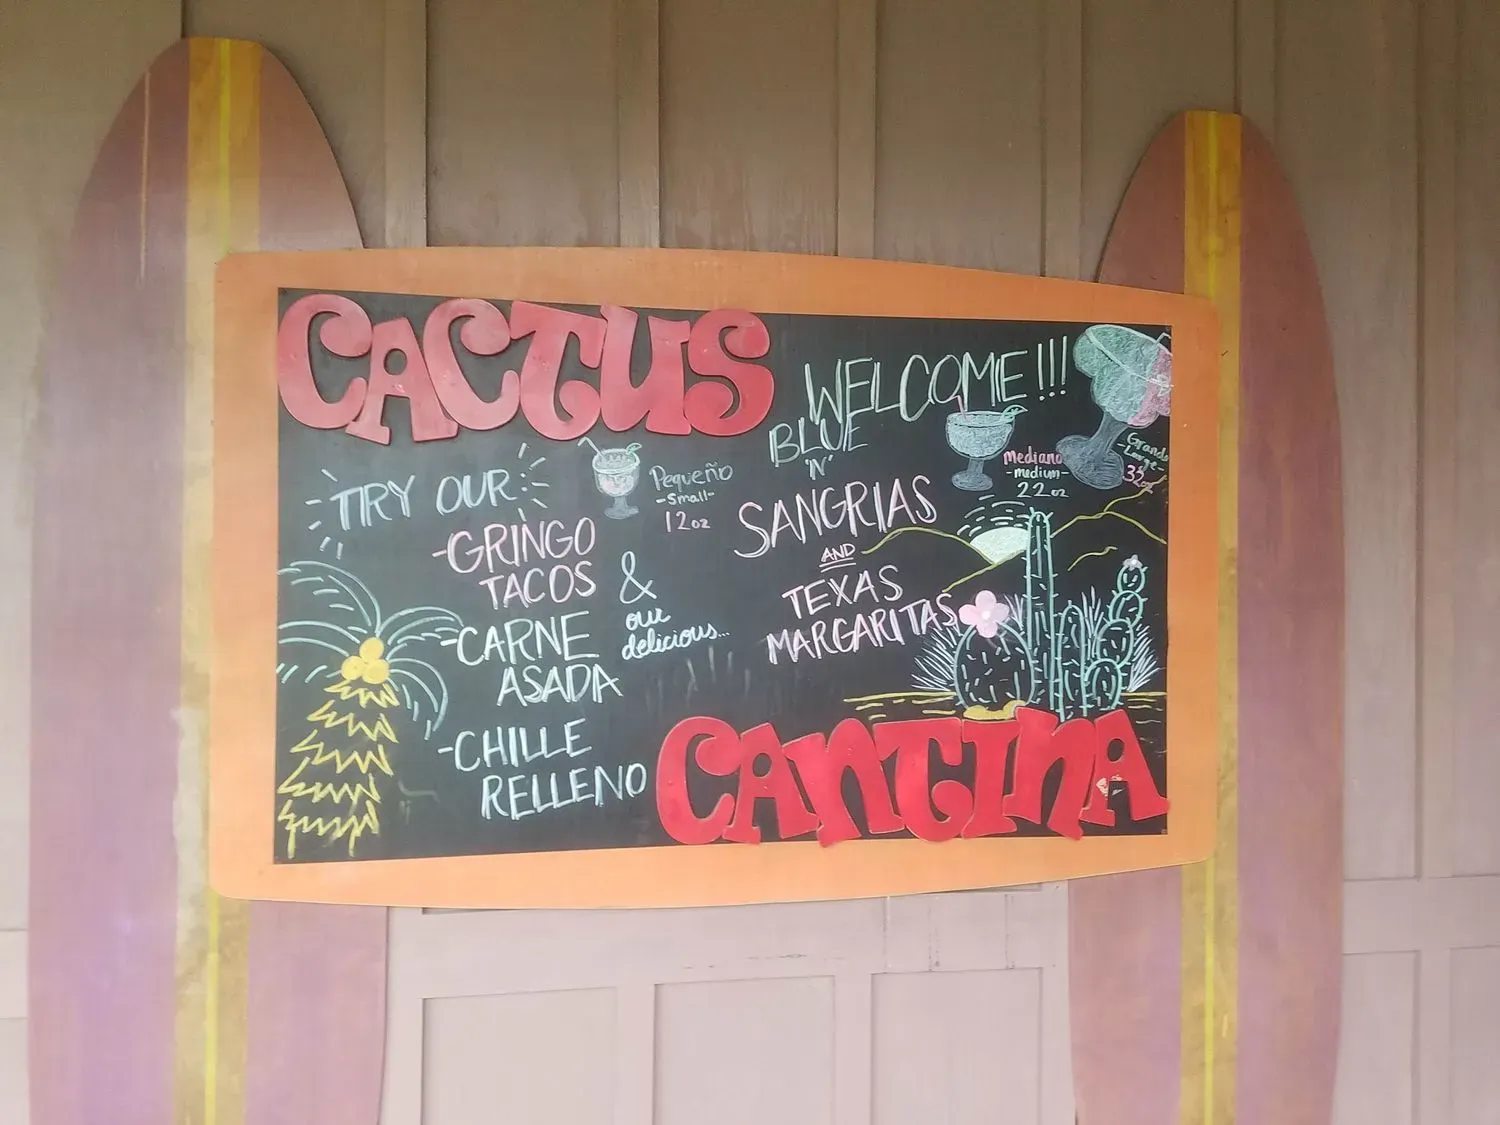 CACTUS
WELCOME!!!
TRY OUR
-GRINGO
TACOS
-CARNE
ASADA
-CHILLE
RELLENO
&
our
delicious...
Pequeño
-Small-
12oz
Mediano
-medium-
22oz
Grande
-Large-
32oz
BLUE
'N'
SANGRIAS
AND
TEXAS
MARGARITAS
CANTINA